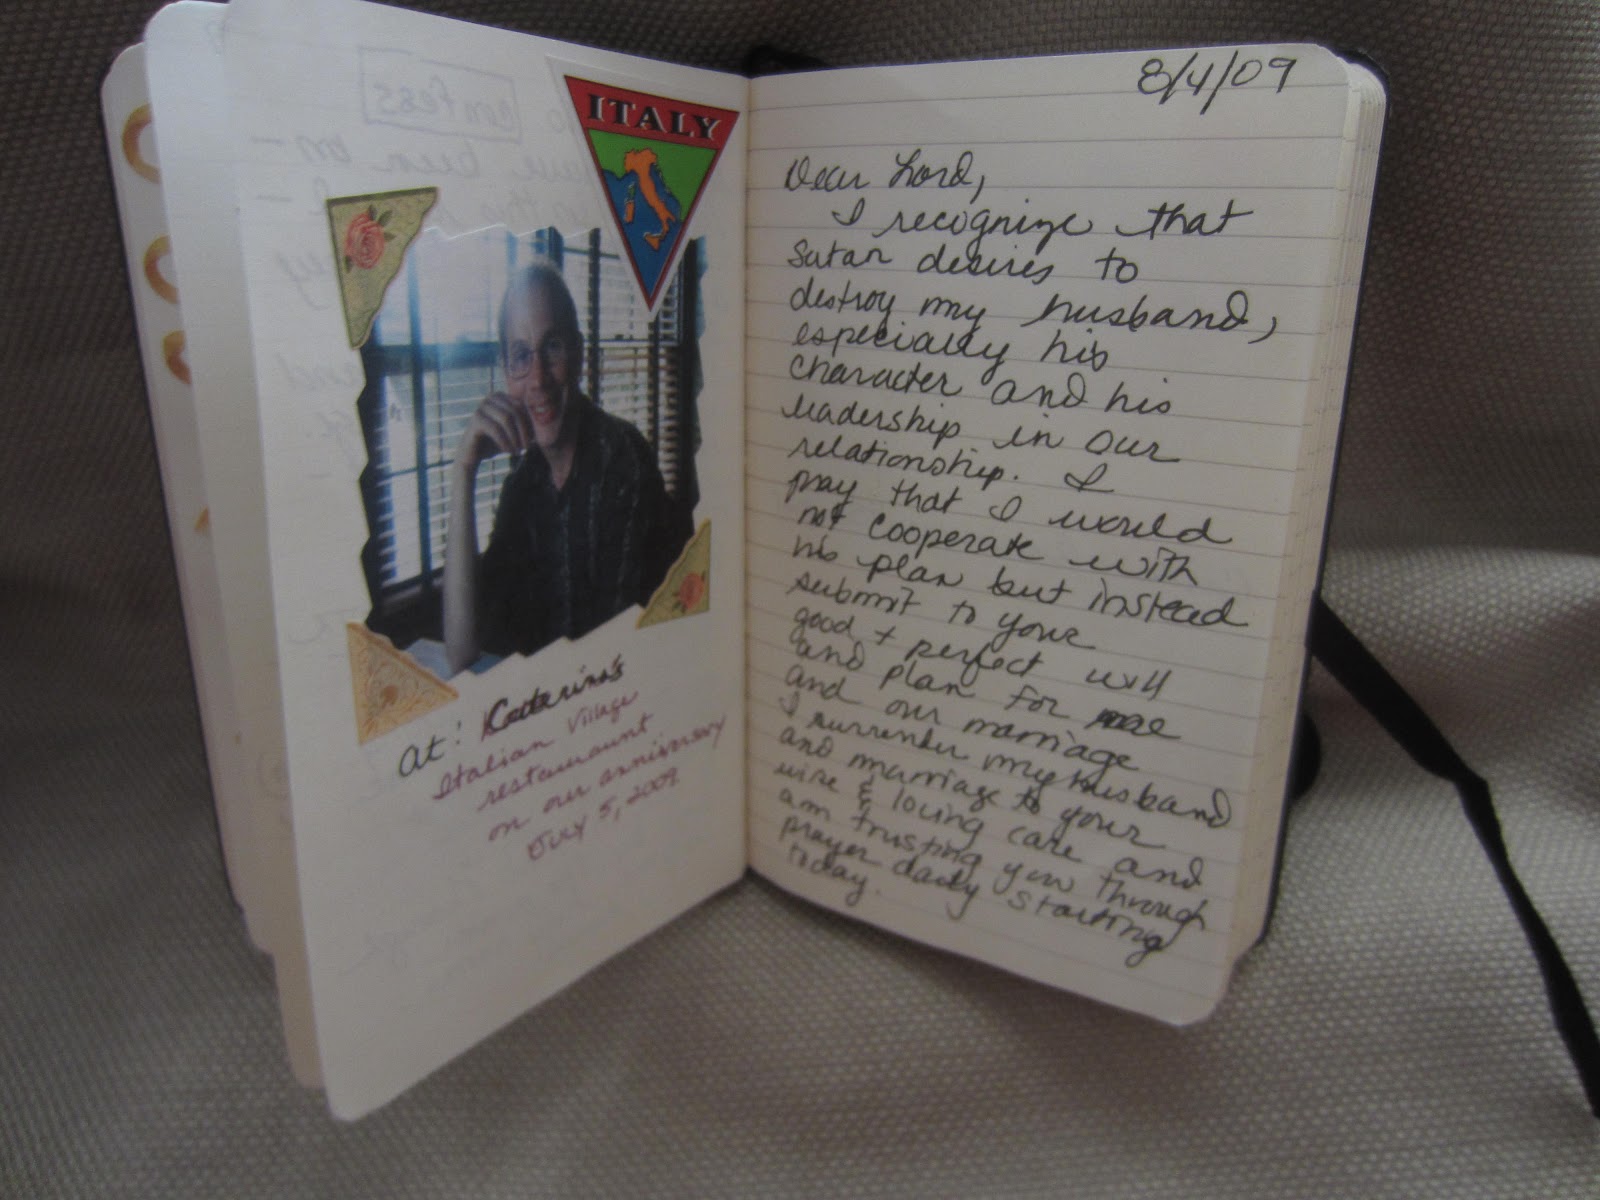 ITALY
At: Caterina's
Italian Village
restaurant
on our anniversary
July 5, 2009
8/4/09
Dear Lord,
I recognize that
Satan desires to
destroy my husband,
especially his
character and his
leadership in our
relationship. I
pray that I would
not cooperate with
his plan but instead
submit to your
good + perfect will
and plan for me
and our marriage
I surrender my husband
and marriage to your
wise & loving care and
am trusting you through
prayer daily starting
today.
confess